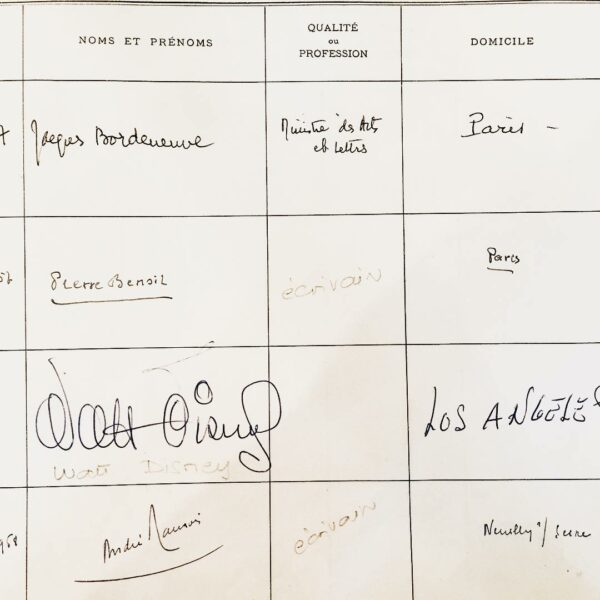 NOMS ET PRÉNOMS
QUALITÉ
ou
PROFESSION
DOMICILE
7 Jacques Bordeneuve
Ministre des Arts
et Lettres
Paris -
Pierre Benoit
écrivain
Paris
Walt Disney
LOS ANGELES
Walt Disney
André Maurois
écrivain
Neuilly s/ Seine